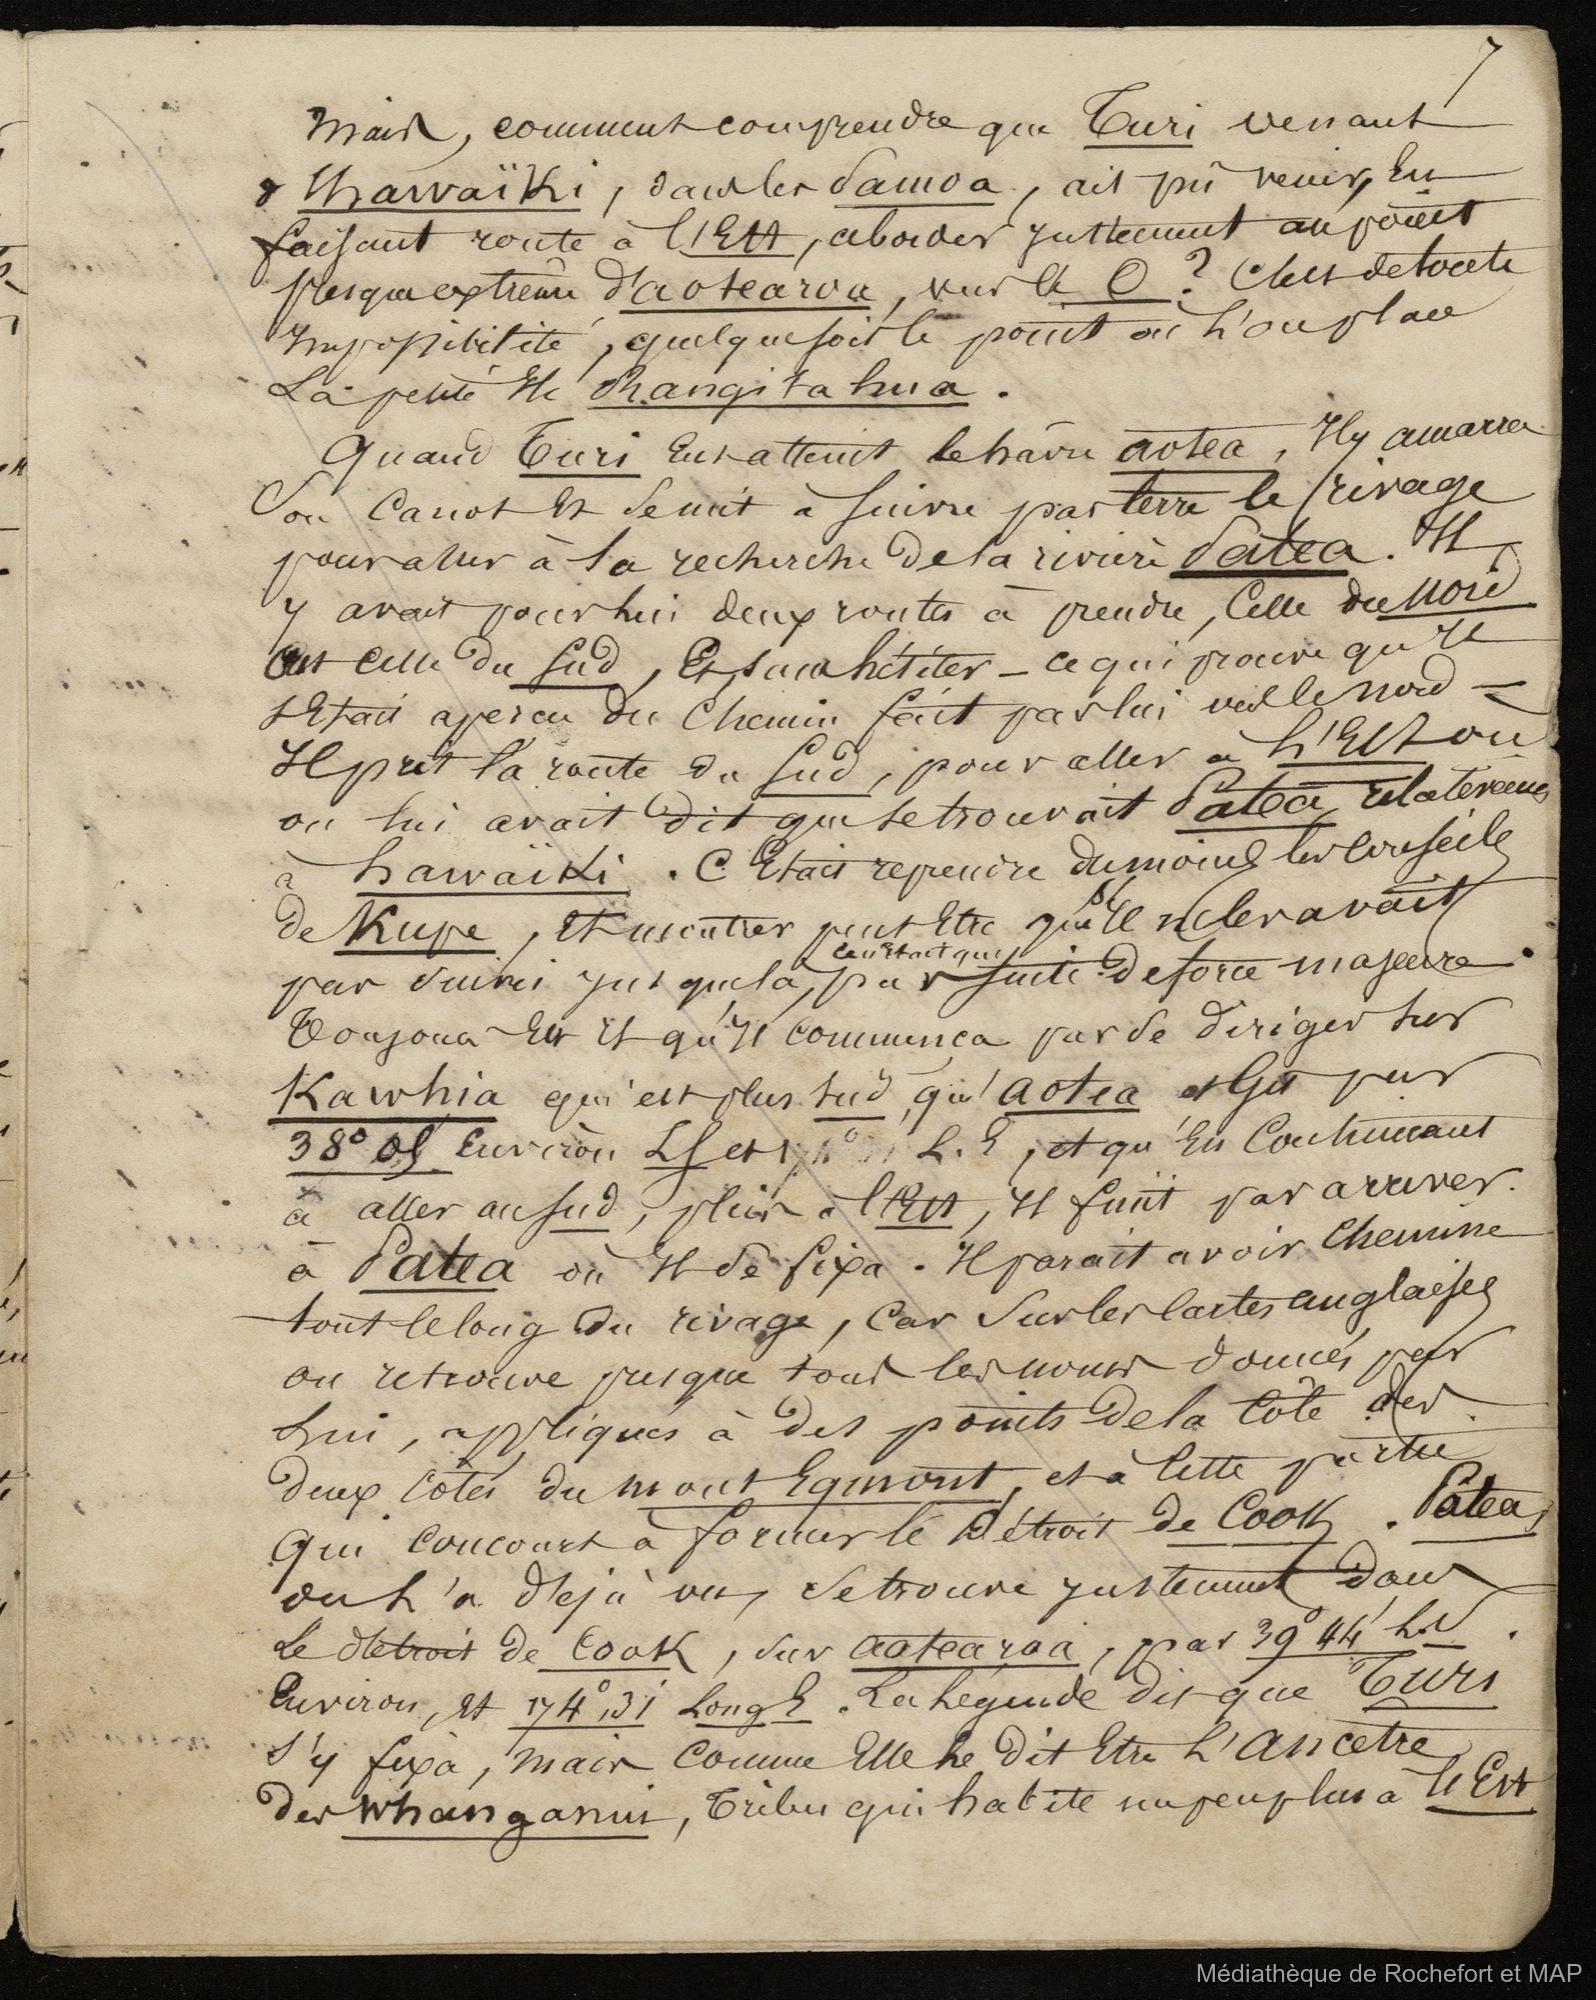 7
Mais, comment comprendre que Turi venant
d'hawaïki, dans les Samoa, ait pu venir, En
faisant route à l'Est, aborder justement au point
presque extrême d'aotearoa, vers le O ? C'est de toute
Impossibilité, quelque soit le point où l'on place
La petite Ile Rhangitahua.
Quand Turi Eut atteint le hâvre aotea, Il y amarra
Son Canot Et Se mit à Suivre par terre le rivage
pour aller à la recherche de la rivière Patea. Il
y avait pour lui deux routes à prendre, Celle du Nord
Et celle du Sud, Et, sans hésiter – ce qui prouve qu'Il
s'Etait aperçu du Chemin fait par lui vers le nord –
Il prit la route du Sud, pour aller à l'Est où
on lui avait dit que se trouvait Patea, relativement
à hawaïki. C'Etait reprendre du moins les Conseils
de Kupe, Et montrer peut Etre que s'Il ne les avait
pas suivis jusque là, c'Etait que par suite de force majeure.
Toujours Est Il qu'Il Commença par se diriger sur
Kawhia qui est plus Sud, qu'aotea et Gît par
38° 05 Environ LS et L. E, et qu'En Continuant
à aller au Sud, puis à l'Est, Il finit par arriver
à Patea où Il se fixa. Il parait avoir Cheminé
tout le long du rivage, Car Sur les Cartes anglaises
on retrouve presque tous les noms donnés par
lui, appliqués à des points de la Côte des
deux Côtés du mont Egmont, et à Cette partie
qui Concourt à former le détroit de Cook. Patea,
on l'a déjà vu, Se trouve justement dans
Le détroit de Cook, Sur aotearoa, par 39° 44' L.S.
Environ, Et 174°,31 Long E. La Légende dit que Turi
s'y fixa, mais Comme Elle le dit Etre l'Ancêtre
des Whanganuis, Tribu qui habite un peu plus à l'Est
Médiathèque de Rochefort et MAP